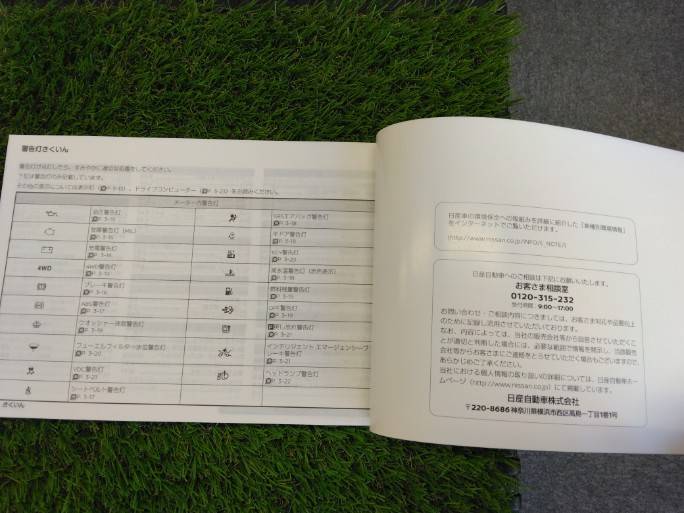 警告灯さくいん
警告灯が点灯したら、すみやかに適切な処置をしてください。
下記は警告灯のみ記載しています。
その他の表示については表示灯（P. 3-10）、ドライブコンピューター（P. 3-23）をお読みください。
メーター内警告灯
油圧警告灯
P. 3-15
SRSエアバッグ警告灯
P. 3-18
エンジン警告灯（MIL）
半ドア警告灯
充電警告灯
P. 3-20
4WD
4WD警告灯
高水温警告灯（赤色表示）
P. 3-18
ブレーキ警告灯
燃料残量警告灯
ABS警告灯
P. 3-17
P. 3-19
ウオッシャー液警告灯
P. 3-19
P. 3-21
フューエルフィルター水位警告灯
P. 3-20
インテリジェント エマージェンシーブ
レーキ警告灯
P. 3-21
VDC警告灯
ヘッドランプ警告灯
P. 3-22
シートベルト警告灯
P. 3-17
さくいん
日産車の環境保全への取組みを詳細に紹介した「車種別環境情報」
をインターネットでご覧いただけます。
日産自動車へのご相談は下記にお願いいたします。
お客さま相談室
0120-315-232
受付時間：9:00〜17:00
お問い合わせ・ご相談内容につきましては、お客さま対応や品質向上
のために記録し活用させていただいております。
なお、内容によっては、当社の販売会社等から回答させていただくこ
とが適切と判断した場合には、必要な範囲で情報を開示し、当該販売
会社等からお客さまにご連絡をとらせていただく場合もございますので、
あらかじめご了承ください。
当社における個人情報の取り扱いの詳細については、日産自動車ホー
ムページ（http://www.nissan.co.jp）にて掲載しています。
日産自動車株式会社
〒220-8686 神奈川県横浜市西区高島一丁目1番1号